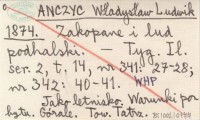 ANCZYC Władysław Ludwik
1874. Zakopane i lud
podhalski. — Tyg. Il.
ser. 2, t. 14, nr 341: 27-28;
nr 342: 40-41. WHP
Jako letnisko. Warunki po-
bytu. Górale. Tow. Tatrz.